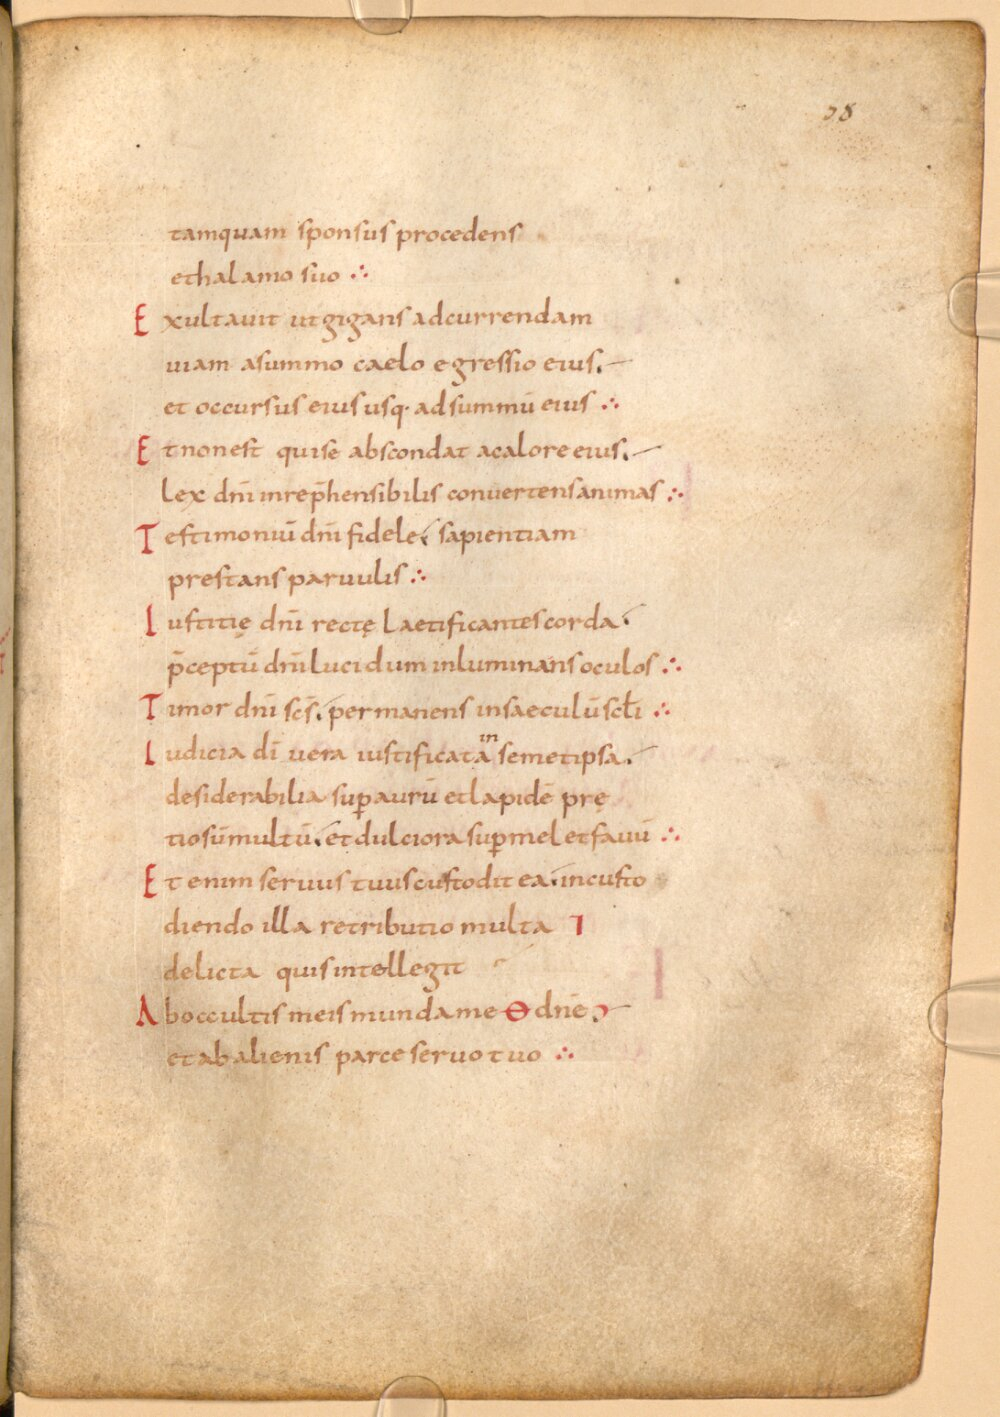 38
tamquam sponsus procedens
ethalamo suo ∴
Exultauit utgigans adcurrendam
uiam asummo caelo egressio eius.
et occursus eius usq· adsummū eius ∴
Etnonest quise abscondat acalore eius.
lex dn̄i inrep̄hensibilis conuertensanimas ∴
Testimoniū dn̄i fidele. sapientiam
prestans paruulis ∴
Iustitię dn̄i rectę Laetificantes corda.
p̄ceptū dn̄i lucidum inluminans oculos ∴
Timor dn̄i scs̄. permanens insaeculū scłi ∴
Iudicia dī uera iustificata in semetipsa.
desiderabilia suꝑaurū etlapidē prę
tiosū multū. et dulciora suꝑmel etfauū ∴
Etenim seruus tuus custodit ea. incusto
diendo illa retributio multa
delicta quis intellegit
Aboccultis meis munda me dn̄e
etabalienis parce seruo tuo ∴